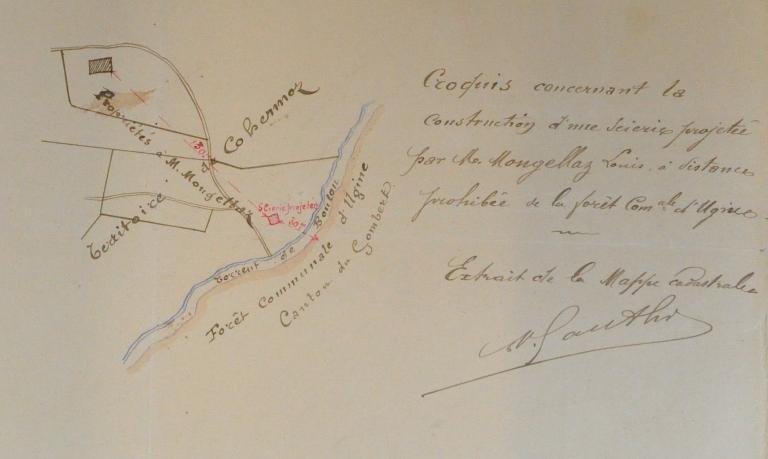 Croquis concernant la
construction d'une Scierie projetée
par Mr. Mongellaz Louis, à distance
prohibée de la forêt Comale d'Ugine.
Extrait de la Mappe cadastrale
Propriétés à M. Mongellaz
Territoire de Cohennoz
Scierie projetée
Torrent de Nantou
Forêt Communale d'Ugine
Canton du Gombert.